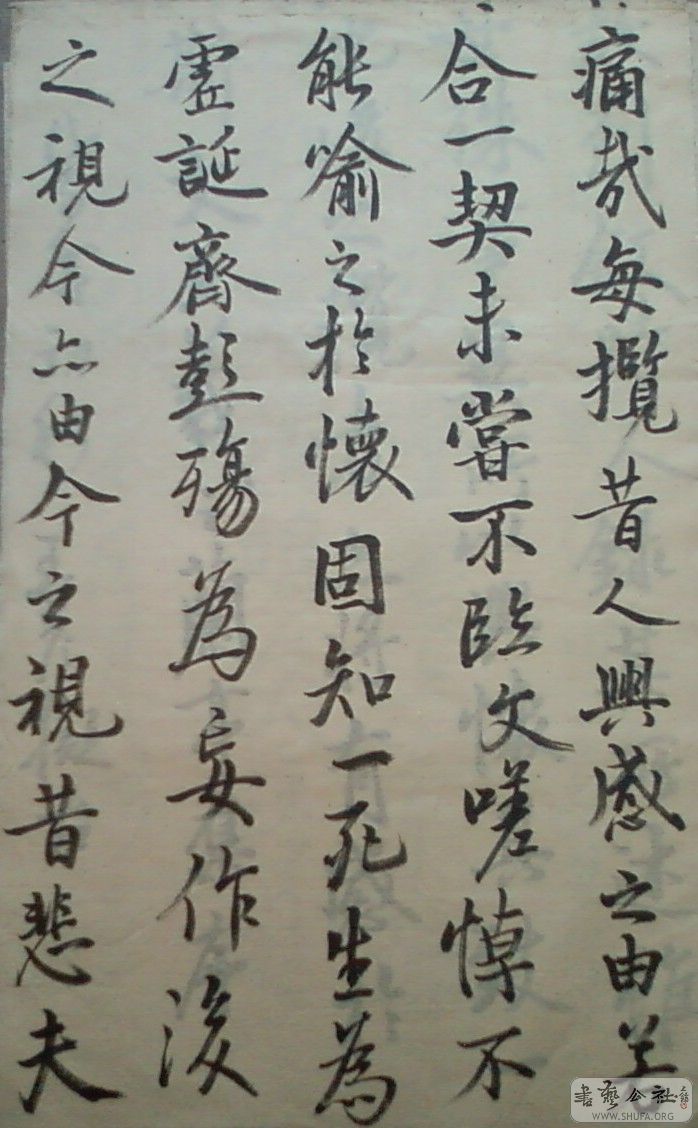 痛哉每攬昔人興感之由若
合一契未嘗不臨文嗟悼不
能喻之於懷固知一死生為
虛誕齊彭殤為妄作後
之視今亦由今之視昔悲夫
書藝公社
WWW.SHUFA.ORG